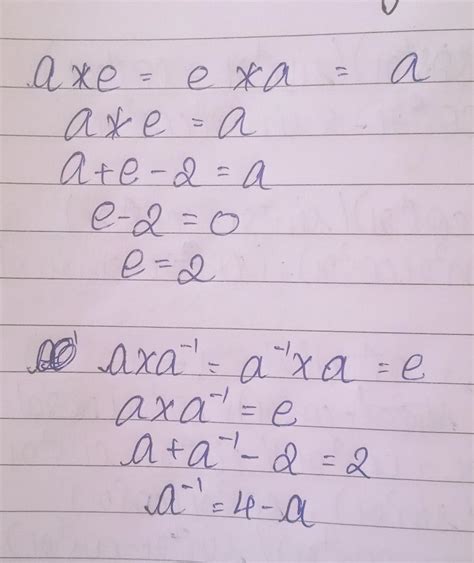 a * e = e * a = a
a * e = a
a + e - 2 = a
e - 2 = 0
e = 2
a x a⁻¹ = a⁻¹ x a = e
a x a⁻¹ = e
a + a⁻¹ - 2 = 2
a⁻¹ = 4 - a